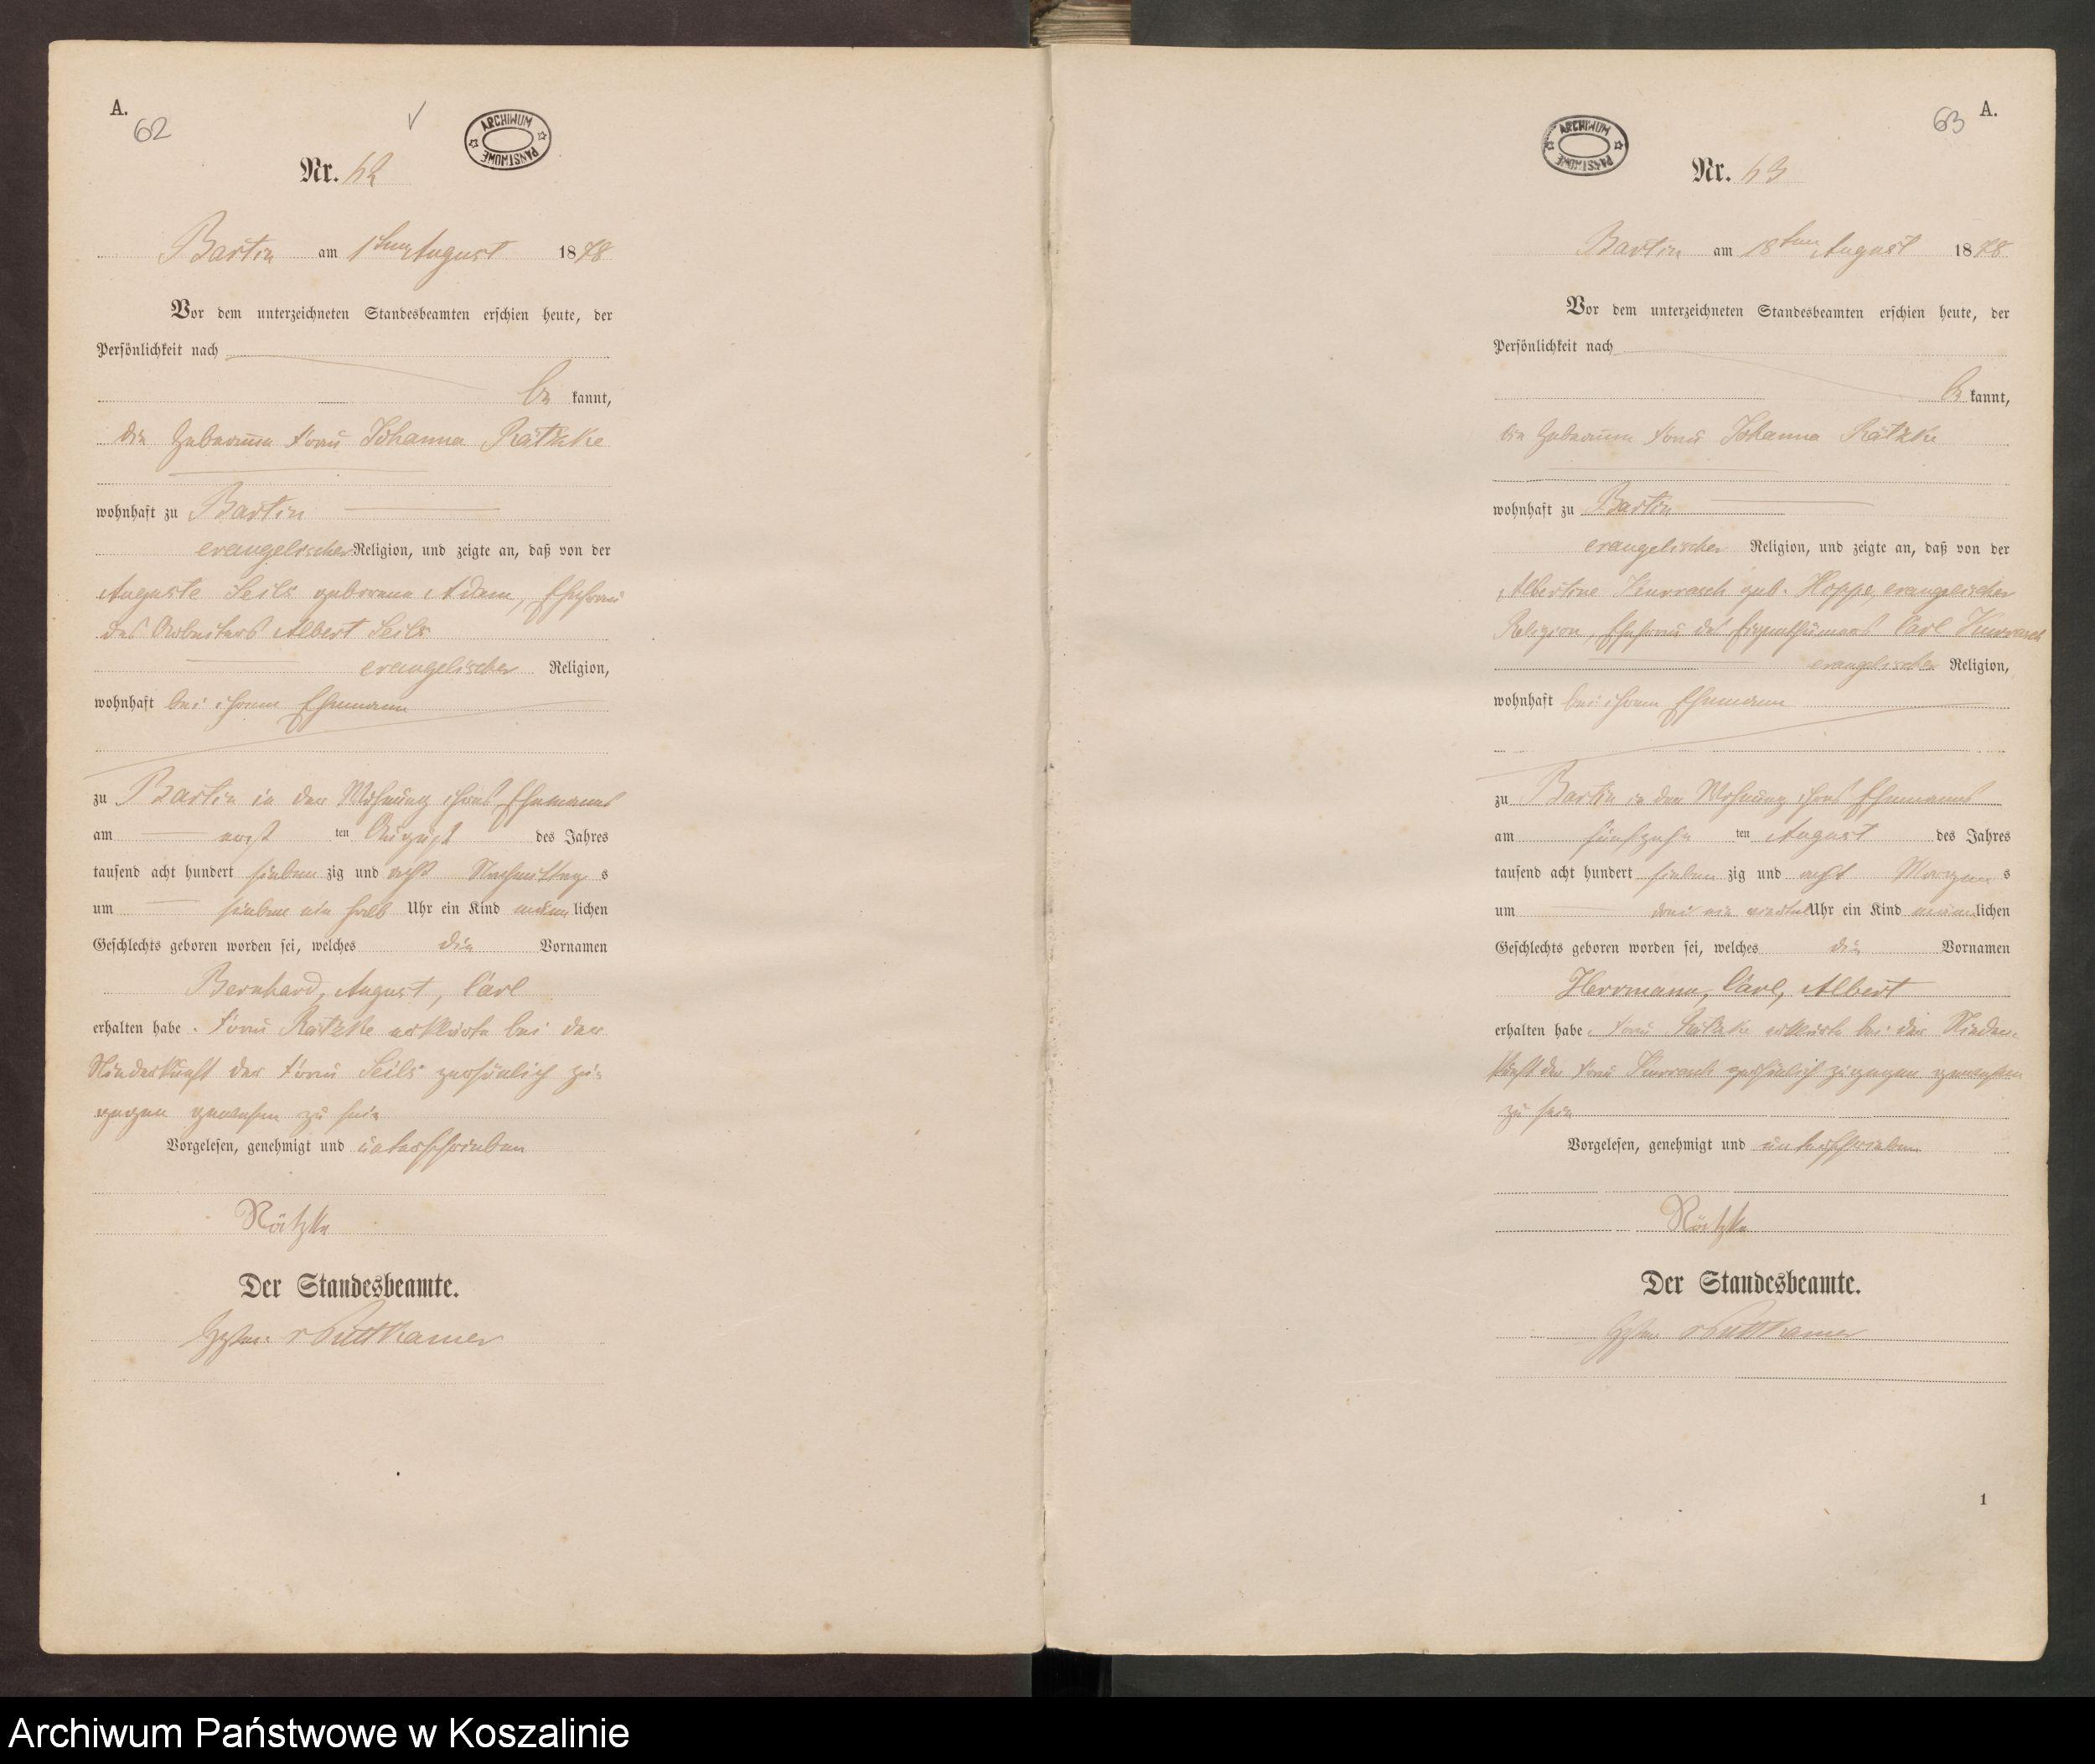 A.
62
ARCHIWUM PAŃSTWOWE
Nr. 62
Bartin am August 1878
Vor dem unterzeichneten Standesbeamten erschien heute, der
Persönlichkeit nach
be kannt,
die Hebamme Frau Johanna Rätzke
wohnhaft zu Bartin
evangelischer Religion, und zeigte an, daß von der
Auguste Seils geborene Adam, Ehefrau
des Arbeiters Albert Seils
evangelischer Religion,
wohnhaft bei ihrem Ehemann
zu Bartin in der Wohnung ihres Ehemanns
am ten August des Jahres
tausend acht hundert sieben zig und acht Nachmittag s
um sieben ein halb Uhr ein Kind männ lichen
Geschlechts geboren worden sei, welches die Vornamen
Bernhard, August, Carl
erhalten habe. Frau Rätzke erklärte bei der
Niederkunft der Frau Seils persönlich zu-
gegen gewesen zu sein
Vorgelesen, genehmigt und unterschrieben
Rätzke
Der Standesbeamte.
v Puttkamer
63
A.
ARCHIWUM PAŃSTWOWE
Nr. 63
Bartin am 18ten August 1878
Vor dem unterzeichneten Standesbeamten erschien heute, der
Persönlichkeit nach
be kannt,
die Hebamme Frau Johanna Rätzke
wohnhaft zu Bartin
evangelischer Religion, und zeigte an, daß von der
Albertine Kurrasch geb. Hoppe, evangelischer
Religion, Ehefrau des Eigenthümers Carl Kurrasch
evangelischer Religion,
wohnhaft bei ihrem Ehemann
zu Bartin in der Wohnung ihres Ehemanns
am fünfzehn ten August des Jahres
tausend acht hundert sieben zig und acht Morgen s
um drei ein viertel Uhr ein Kind männ lichen
Geschlechts geboren worden sei, welches die Vornamen
Herrmann, Carl, Albert
erhalten habe. Frau Rätzke erklärte bei der Nieder-
kunft der Frau Kurrasch persönlich zugegen gewesen
zu sein
Vorgelesen, genehmigt und unterschrieben
Rätzke
Der Standesbeamte.
v Puttkamer
1
Archiwum Państwowe w Koszalinie